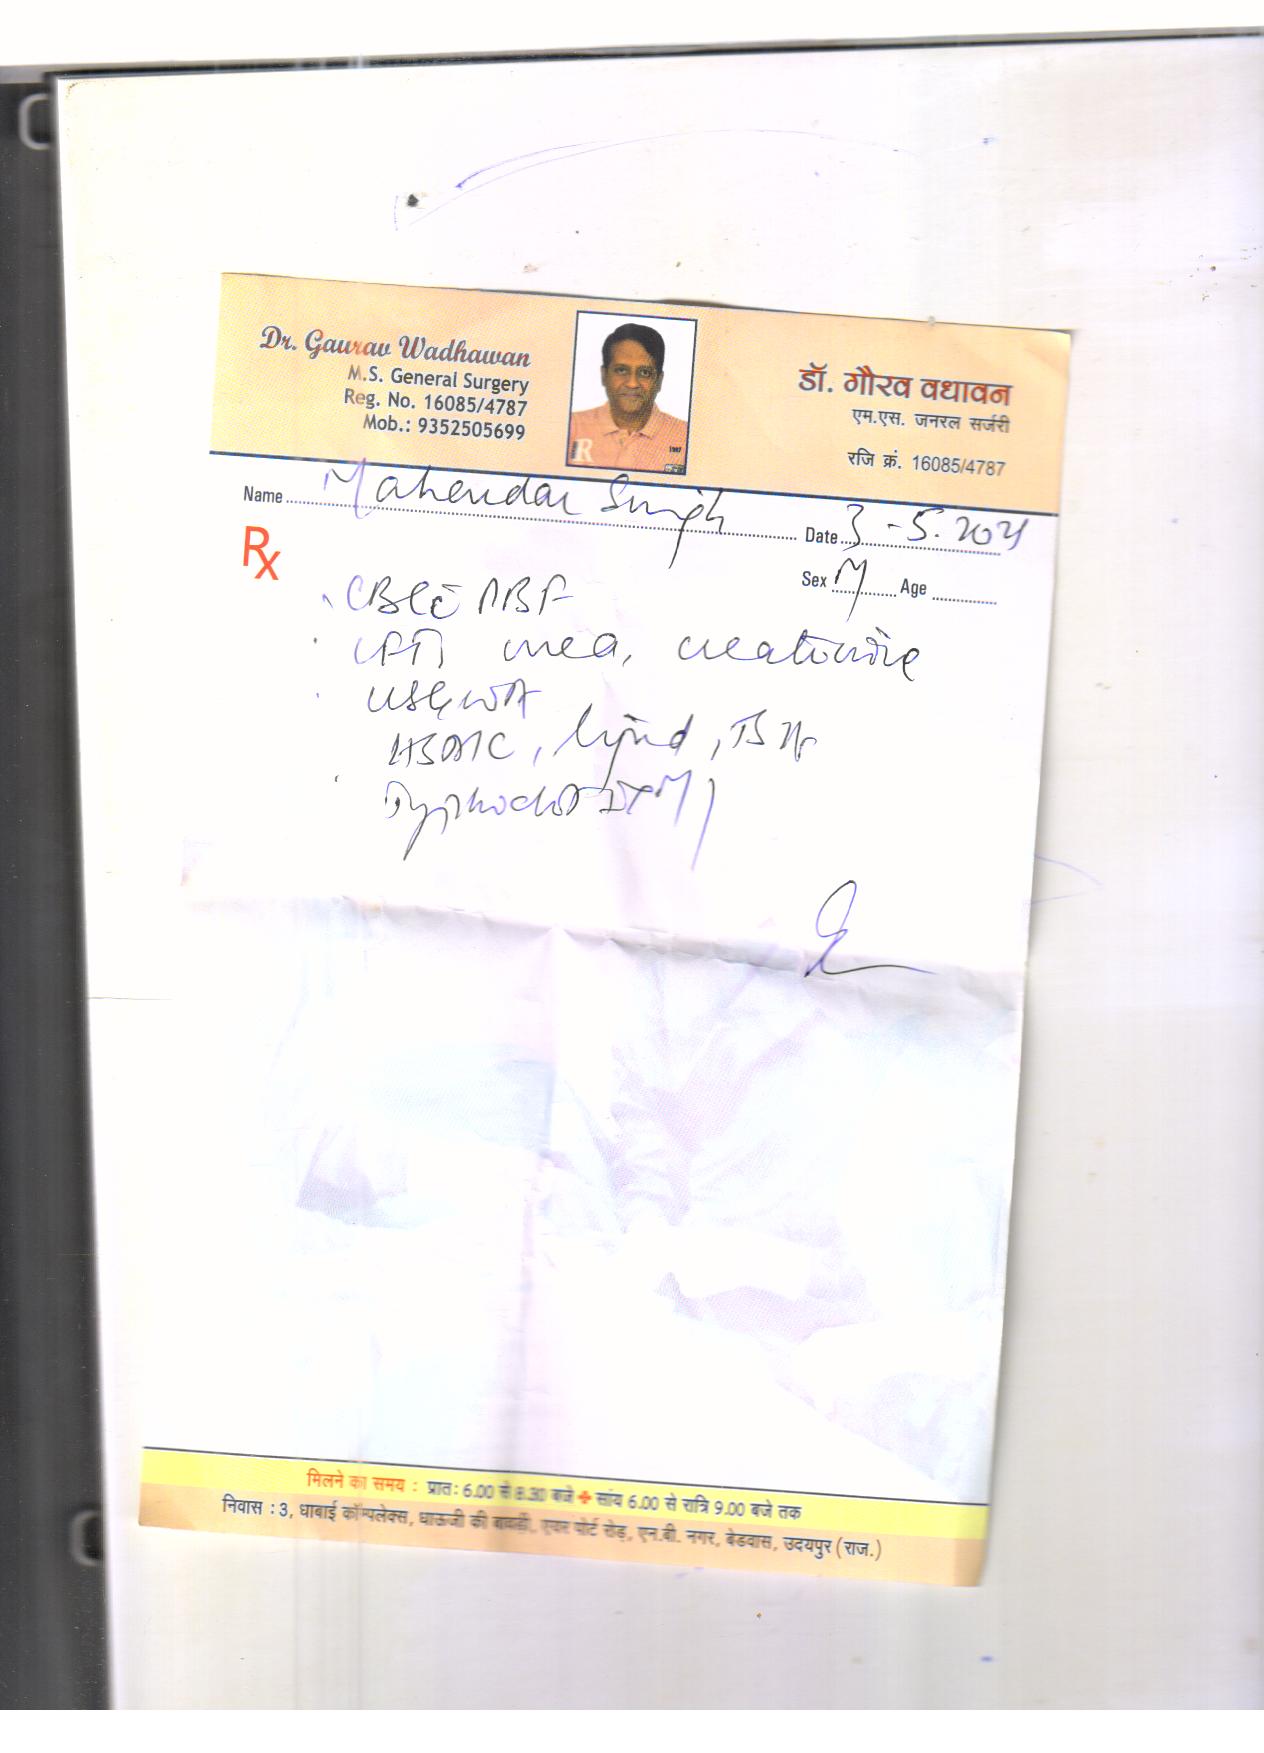 Dr. Gaurav Wadhawan
M.S. General Surgery
Reg. No. 16085/4787
Mob.: 9352505699
डॉ. गौरव वधावन
एम.एस. जनरल सर्जरी
रजि क्रं. 16085/4787
Name Mahendar Singh
Date 3-5.2021
Sex M Age
Rx
CBC c̄ PBF
LFT, urea, creatinine
USG WA
HBA1C, lipid,
Typhidot IgM
मिलने का समय : प्रातः 6.00 से 8.30 बजे + सांय 6.00 से रात्रि 9.00 बजे तक
निवास : 3, धाबाई कॉम्पलेक्स, धाऊजी की बावड़ी, एयर पोर्ट रोड़, एन.बी. नगर, बेडवास, उदयपुर (राज.)